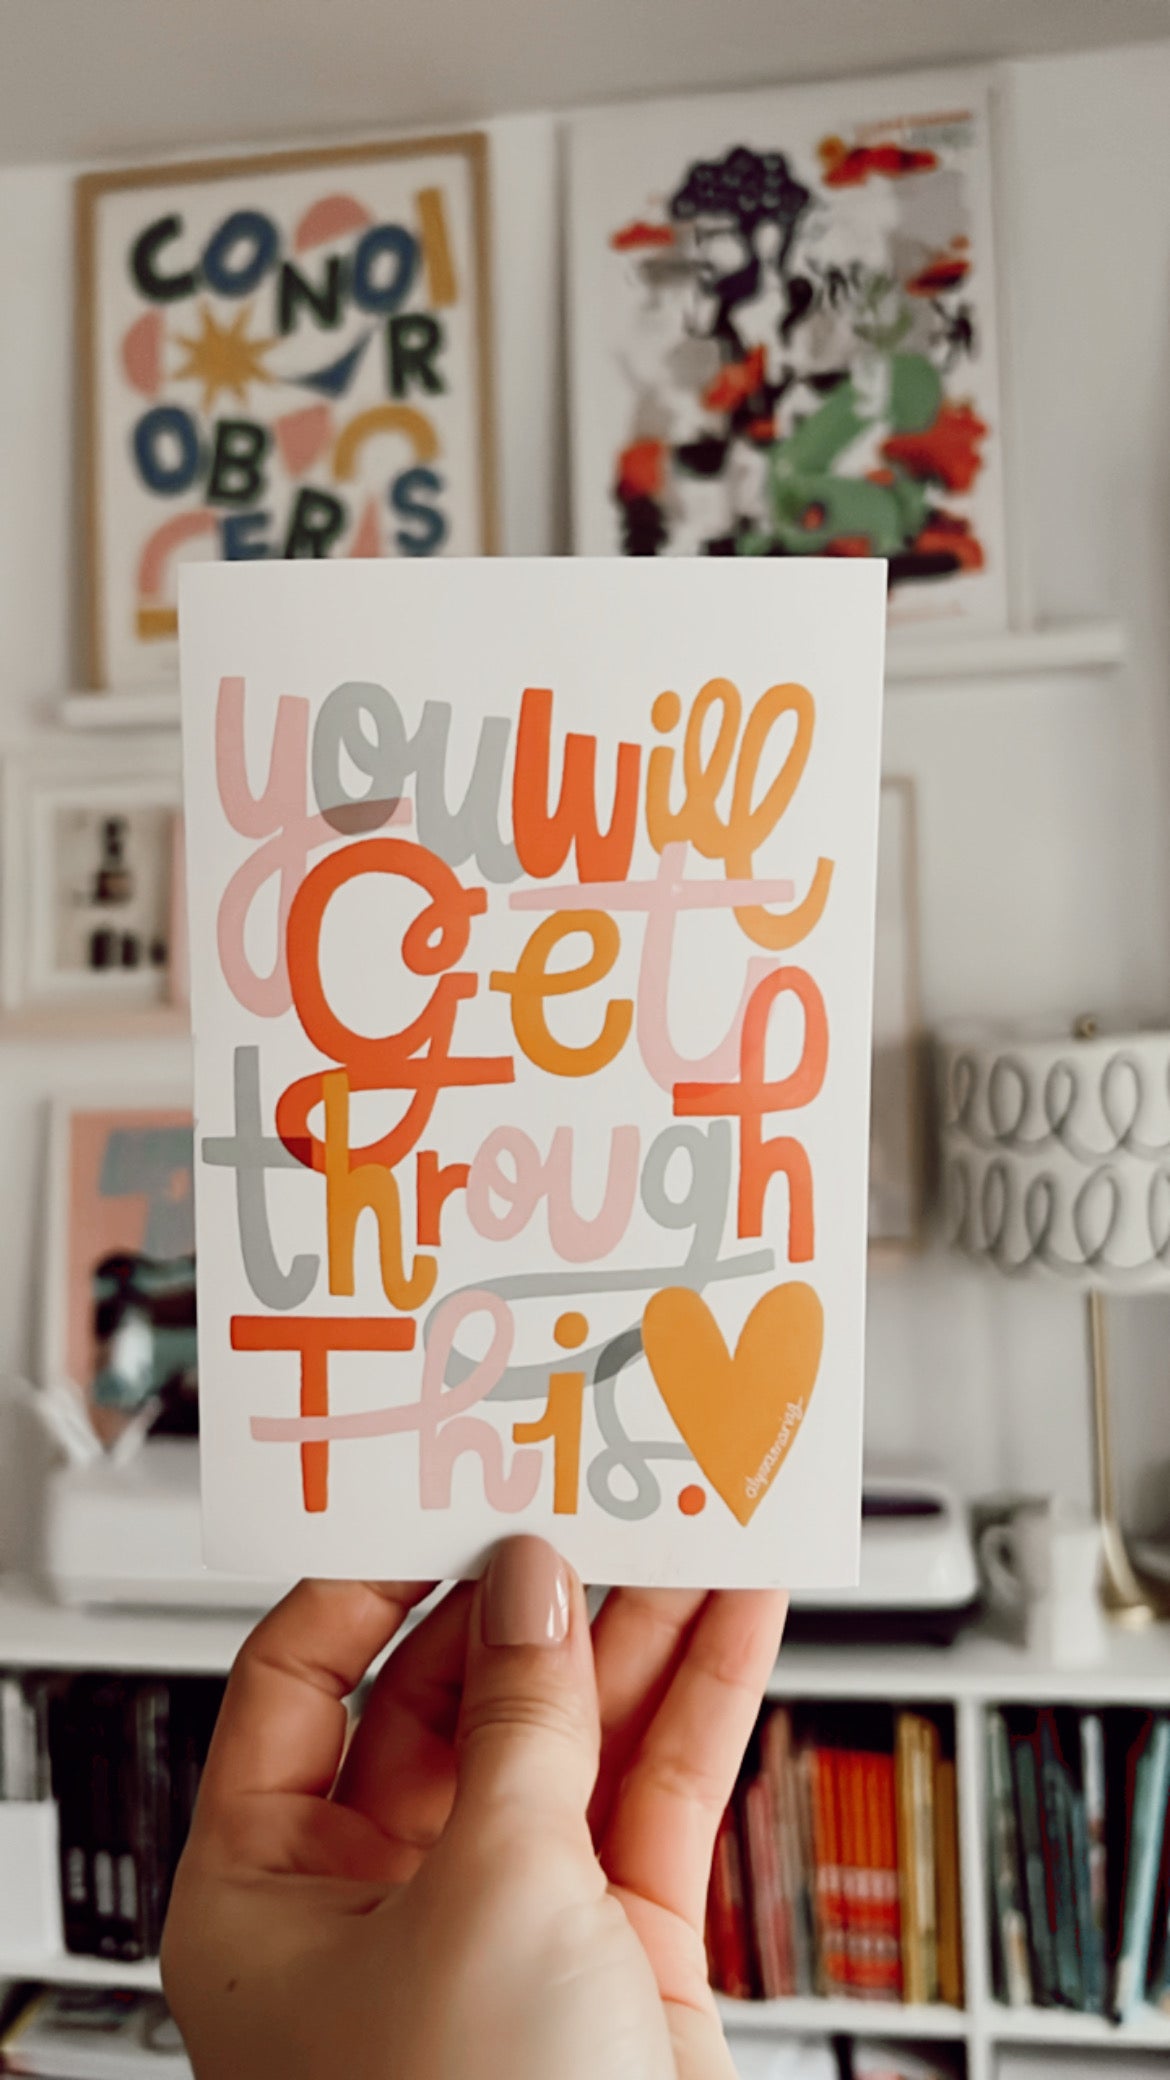 CONOR
OBERS
you will
Get
through
This.
alyssamarisg